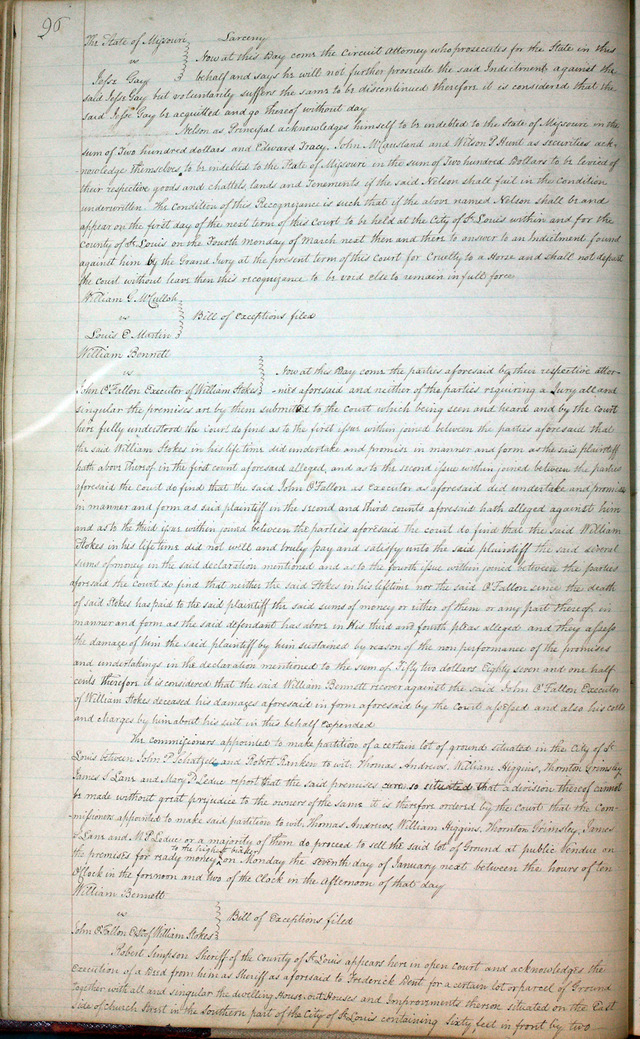 96
The State of Missouri } Larceny
vs } Now at this Day come the Circuit Attorney who prosecutes for the State in this
Jesse Gay } behalf and says he will not further prosecute the said Indictment against the
said Jesse Gay but voluntarily suffers the same to be discontinued therefore it is considered that the
said Jesse Gay be acquitted and go thereof without day
Nelson as Principal acknowledges himself to be indebted to the State of Missouri in the
sum of Two hundred dollars and Edward Tracy, John McCausland and Wilson P Hunt as securities ack-
nowledge themselves to be indebted to the State of Missouri in the sum of Two hundred Dollars to be levied of
their respective goods and chattels, lands and Tenements if the said Nelson shall fail in the condition
underwritten The Condition of this Recognizance is such that if the above named Nelson shall be and
appear on the first day of the next term of this Court to be held at the City of St Louis within and for the
County of St Louis on the Fourth Monday of March next then and there to answer to an Indictment found
against him by the Grand Jury at the present term of this Court for Cruelty to a Horse and shall not depart
the Court without leave then this recognizance to be void else to remain in full force
William G McCulloh }
vs } Bill of Exceptions filed
Louis C Martin }
William Bennett }
vs } Now at this Day come the parties aforesaid by their respective attor-
John O'Fallon Executor of William Stokes } -nies aforesaid and neither of the parties requiring a Jury all and
singular the premises are by them submitted to the court which being seen and heard and by the court
here fully understood the Court do find as to the first issue within joined between the parties aforesaid that
the said William Stokes in his life time did undertake and promise in manner and form as the said plaintiff
hath above thereof in the first count aforesaid alleged, and as to the second issue within joined between the parties
aforesaid the court do find that the said John O'Fallon as executor as aforesaid did undertake and promise
in manner and form as said plaintiff in the second and third counts aforesaid hath alleged against him
and as to the third issue within joined between the parties aforesaid the court do find that the said William
Stokes in his life time did not well and truly pay and satisfy unto the said plaintiff the said several
sums of money in the said declaration mentioned and as to the fourth issue within joined between the parties
aforesaid the Court do find that neither the said Stokes in his lifetime nor the said O'Fallon since the death
of said Stokes has paid to the said plaintiff the said sums of money or either of them or any part thereof in
manner and form as the said defendant has above in His third and fourth pleas alleged and they assess
the damage of him the said plaintiff by him sustained by reason of the non performance of the promises
and undertakings in the declaration mentioned to the sum of Fifty two dollars Eighty seven and one half
cents therefore it is considered that the said William Bennett recover against the said John O'Fallon Executor
of William Stokes deceased his damages aforesaid in form aforesaid by the Court assessed and also his costs
and charges by him about his suit in this behalf expended
The commissioners appointed to make partition of a certain lot of ground situated in the City of St
Louis between John P Schatzell and Robert Ranken to wit: Thomas Andrews, William Higgins, Thornton Grimsley
James S Lane and Mary P Leduc report that the said premises are so situated that a division thereof cannot
be made without great prejudice to the owners of the same it is therefore ordered by the Court that the Com-
missioners appointed to make said partition to wit, Thomas Andrews, William Higgins, Thornton Grimsley, James
S Lane and M P Leduc or a majority of them do proceed to sell the said lot of Ground at public Vendue on
the premises for ready money to the highest bidder on Monday the seventh day of January next between the hours of ten
O'Clock in the forenoon and two of the Clock in the Afternoon of that day
William Bennett }
vs } Bill of Exceptions filed
John O'Fallon Extr of William Stokes }
Robert Simpson Sheriff of the County of St Louis appears here in open Court and acknowledges the
Execution of a Deed from him as Sheriff as aforesaid to Frederick Dent for a certain lot or parcel of Ground
Together with all and singular the dwelling House, out Houses and Improvements thereon situated on the East
side of Church Street in the Southern part of the City of St Louis containing Sixty feet in front by two